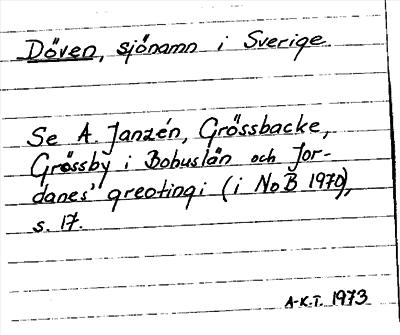 Döven, sjönamn i Sverige.
Se A. Janzén, Grössbacke,
Grössby i Bohuslän och Jor-
danes' greotingi (i NoB 1970),
s. 17.
A-K.T. 1973